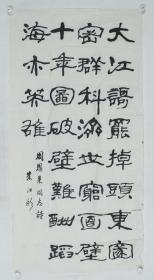 大江謌罷掉頭東邃
密群科濟世窮面壁
十年圖破壁難酬蹈
海亦英雄
周恩來同志詩